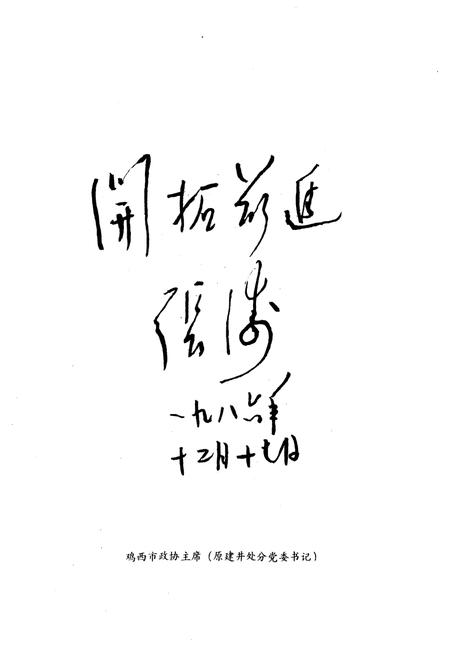 開拓前進
張涛
一九八六年
十二月十七日
鸡西市政协主席（原建井处分党委书记）